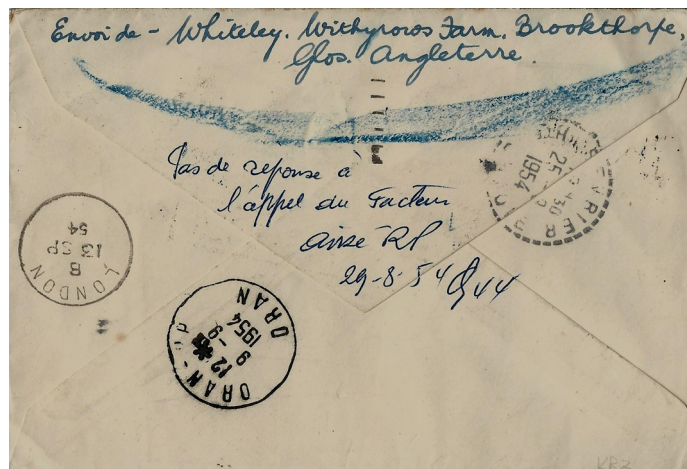 Envoi de - Whiteley. Withyrows Farm. Brookthorpe,
Glos. Angleterre.
Pas de reponse à
l'appel du Facteur
avisé RP
29-8-54
LONDON
8
13 SP
54
ORAN
ORAN
12
9 -9
1954
25 -
1954